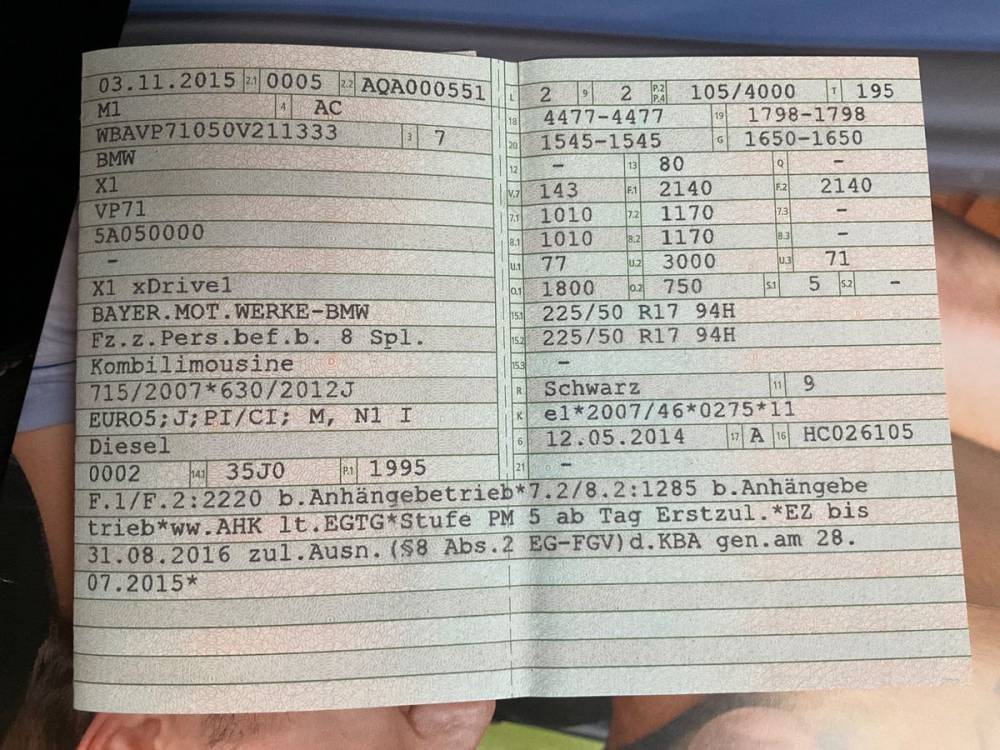 03.11.2015 2.1 0005 2.2 AQA000551
M1 4 AC
WBAVP71050V211333 3 7
BMW
X1
VP71
5A050000
–
X1 xDrive1
BAYER.MOT.WERKE-BMW
Fz.z.Pers.bef.b. 8 Spl.
Kombilimousine
715/2007*630/2012J
EURO5;J;PI/CI; M, N1 I
Diesel
0002 14.1 35J0 P.1 1995
L 2 9 2 P.2 P.4 105/4000 T 195
18 4477-4477 19 1798-1798
20 1545-1545 G 1650-1650
12 – 13 80 Q –
V.7 143 F.1 2140 F.2 2140
7.1 1010 7.2 1170 7.3 –
8.1 1010 8.2 1170 8.3 –
U.1 77 U.2 3000 U.3 71
O.1 1800 O.2 750 S.1 5 S.2 –
15.1 225/50 R17 94H
15.2 225/50 R17 94H
15.3 –
R Schwarz 11 9
K e1*2007/46*0275*11
6 12.05.2014 17 A 16 HC026105
21 –
F.1/F.2:2220 b.Anhängebetrieb*7.2/8.2:1285 b.Anhängebe
trieb*ww.AHK lt.EGTG*Stufe PM 5 ab Tag Erstzul.*EZ bis
31.08.2016 zul.Ausn.(§8 Abs.2 EG-FGV)d.KBA gen.am 28.
07.2015*